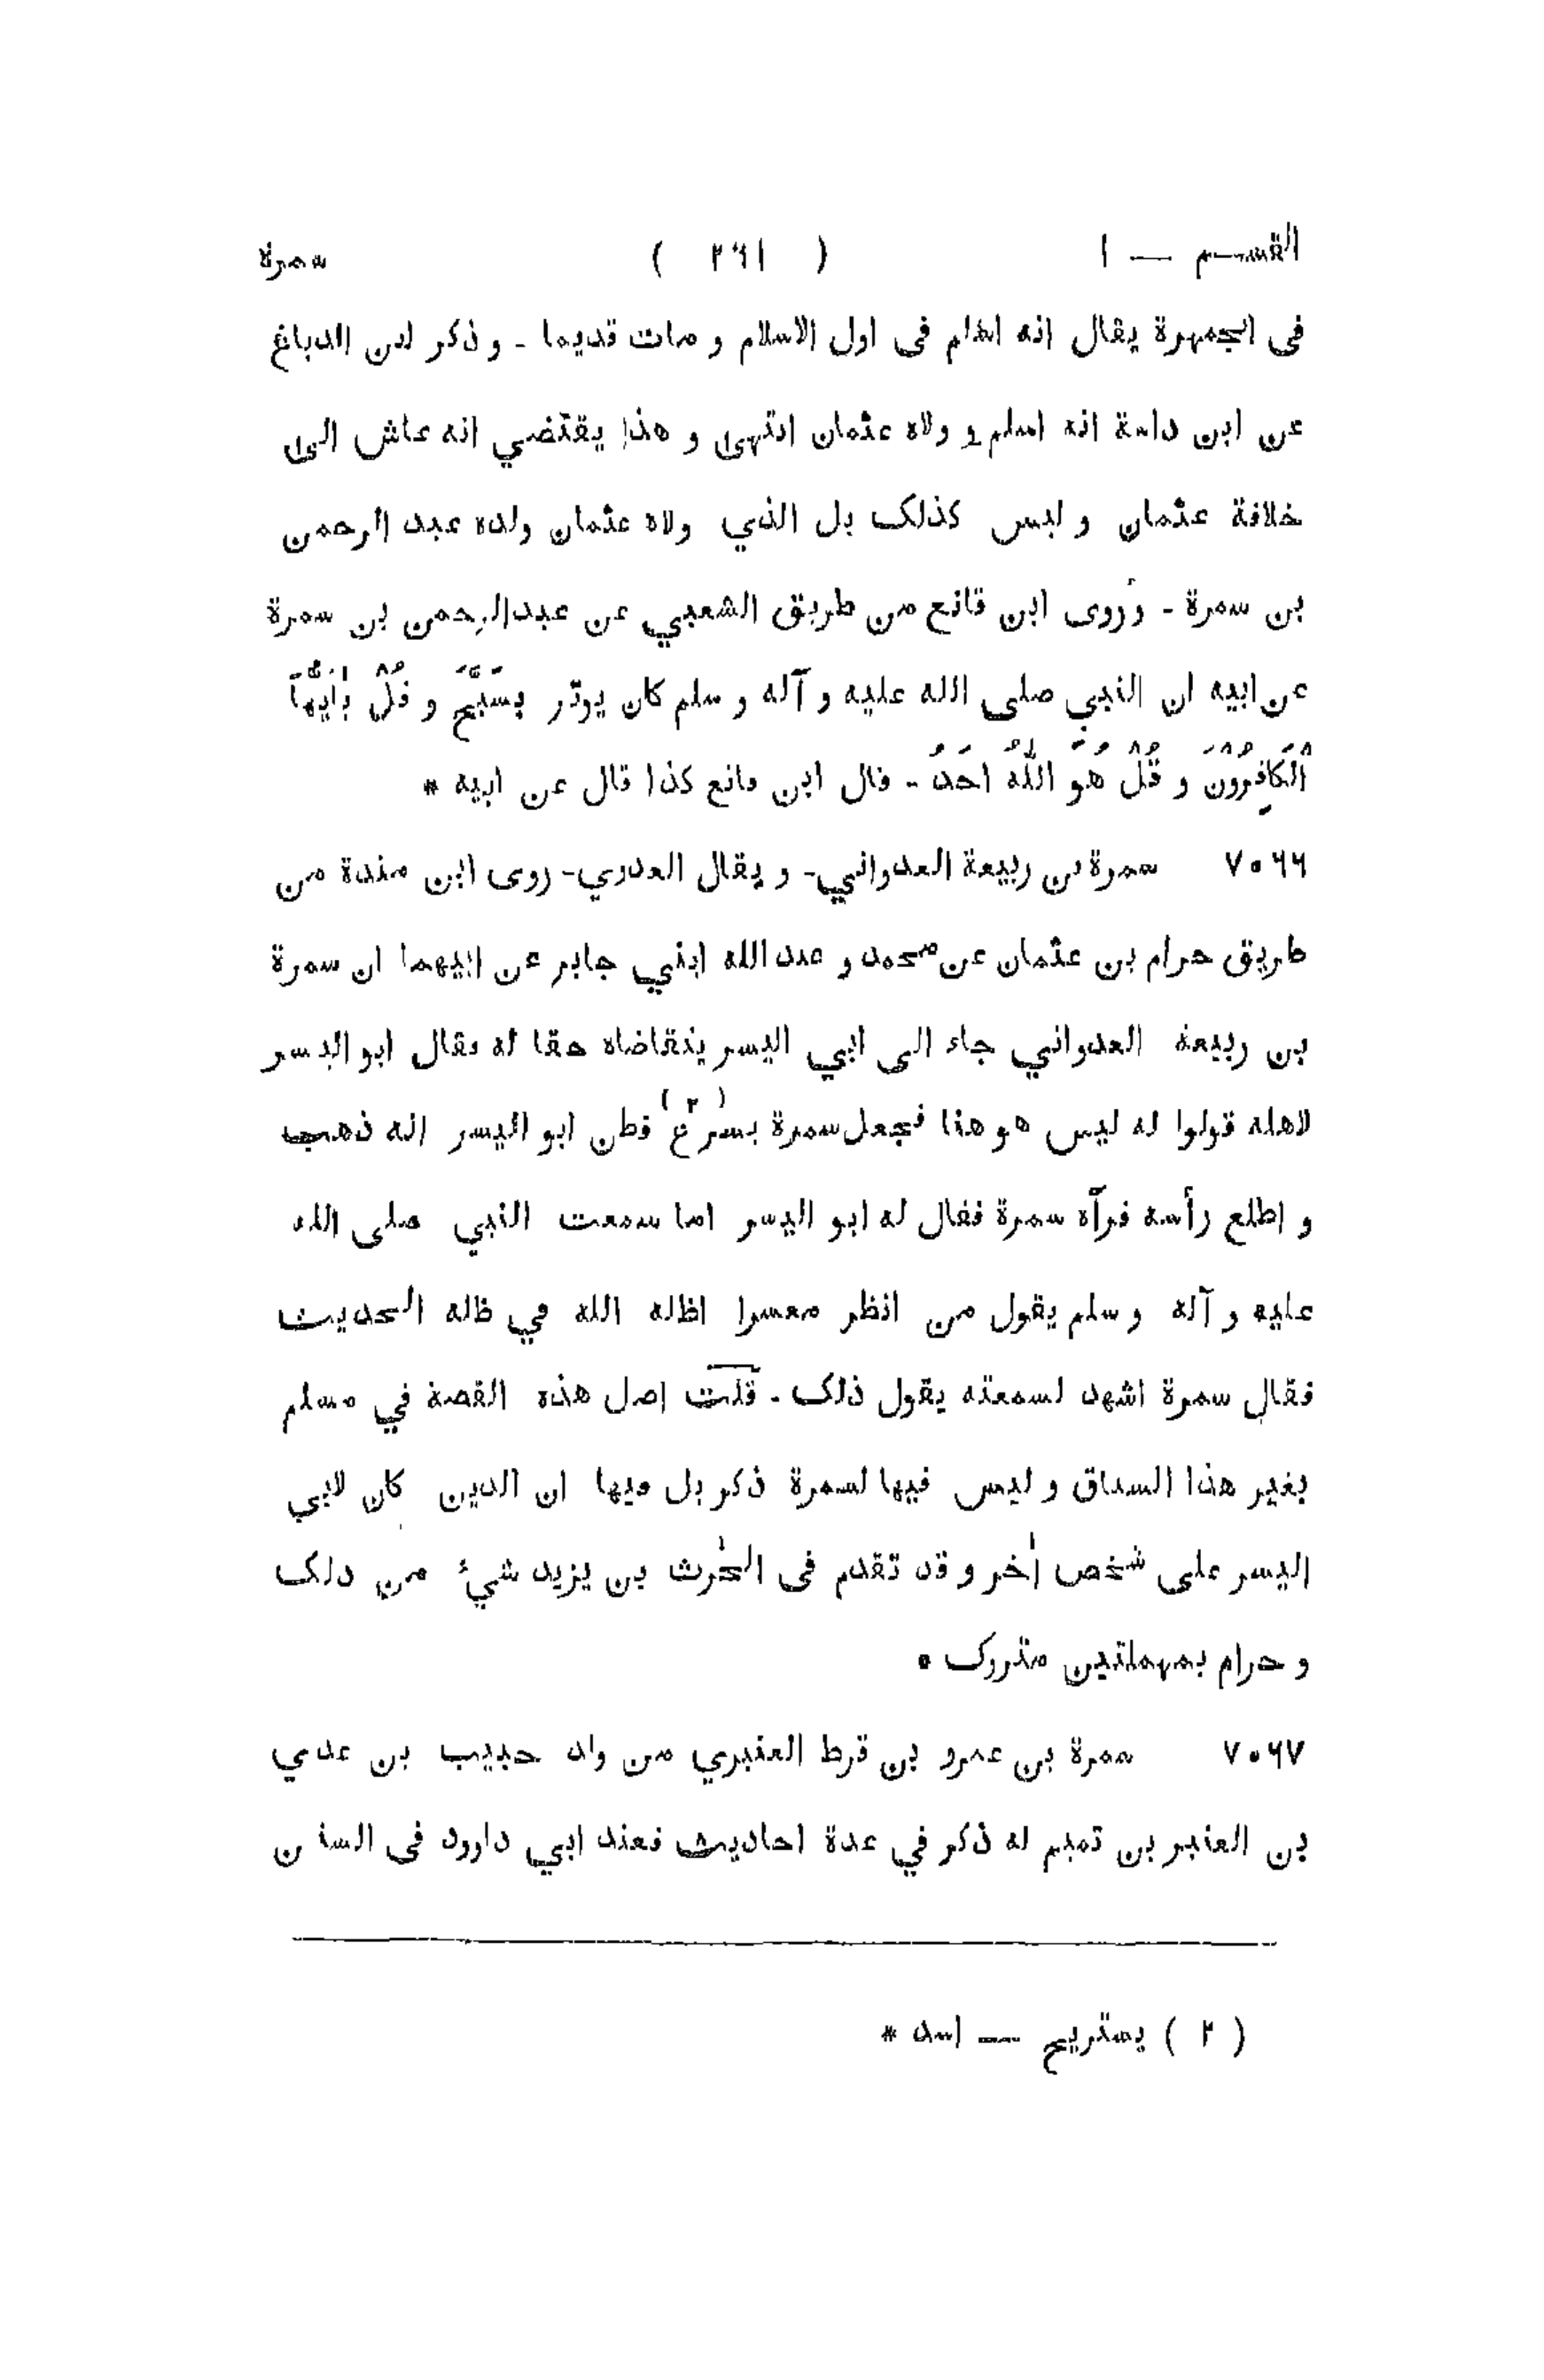 القســم — ١ ( ٢٦١ ) سمرة
فى الجمهرة يقال انه اسلم فى اول الاسلام و مات قديما - و ذكر ابن الدباغ
عن ابن داسة انه اسلم و ولاه عثمان انتهى و هذا يقتضي انه عاش الى
خلافة عثمان و ليس كذلك بل الذي ولاه عثمان ولده عبد الرحمن
بن سمرة - و روى ابن قانع من طريق الشعبي عن عبدالرحمن بن سمرة
عن ابيه ان النبي صلى الله عليه و آله و سلم كان يوتر بِسَبِّحْ و قُلْ يٰاَيُّهَا
الْكَافِرُوْنَ و قُلْ هُوَ اللّٰهُ احَدٌ - قال ابن قانع كذا قال عن ابيه *
٧٠٦٦ سمرة بن ربيعة العدواني - و يقال العدوي - روى ابن مندة من
طريق حرام بن عثمان عن محمد و عبد الله ابني جابر عن ابيهما ان سمرة
بن ربيعة العدواني جاء الى ابي اليسر يتقاضاه حقا له فقال ابو اليسر
لاهله قولوا له ليس هو هنا فجعل سمرة يسرع (٢) فظن ابو اليسر انه ذهب
و اطلع رأسه فرآه سمرة فقال له ابو اليسر اما سمعت النبي صلى الله
عليه و آله و سلم يقول من انظر معسرا اظله الله في ظله الحديث
فقال سمرة اشهد لسمعته يقول ذلك - قلت اصل هذه القصة في مسلم
بغير هذا السياق و ليس فيها لسمرة ذكر بل فيها ان الدين كان لابي
اليسر على شخص اٰخر و قد تقدم فى الحٰرث بن يزيد شيءٌ من ذلك
و حرام بمهملتين متروك *
٧٠٦٧ سمرة بن عمرو بن قرط العنبري من ولد حبيب بن عدي
بن العنبر بن تميم له ذكر في عدة احاديث فعند ابي داوود فى السنن
( ٢ ) يستريح — اسد *